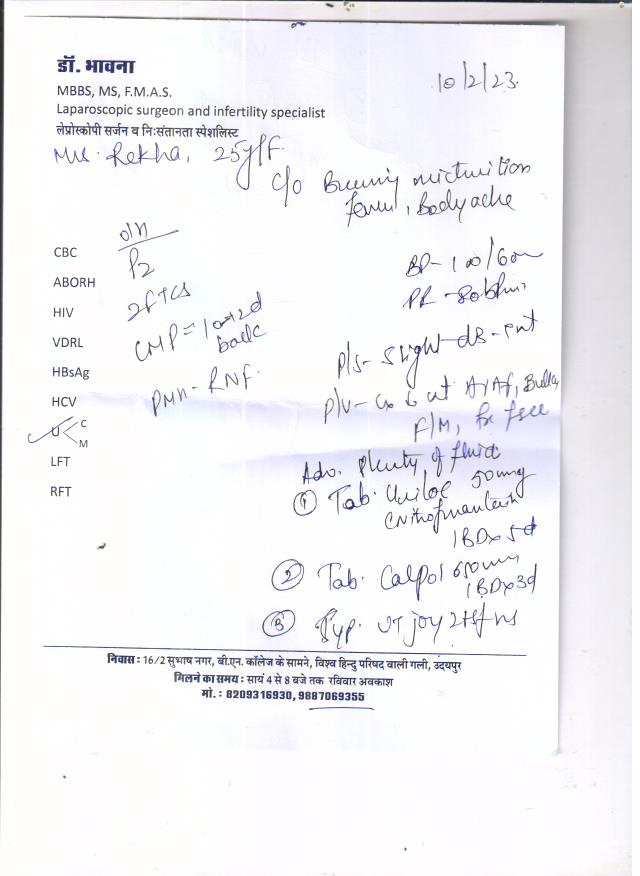 डॉ. भावना
10/2/23
MBBS, MS, F.M.A.S.
Laparoscopic surgeon and infertility specialist
लेप्रोस्कोपी सर्जन व निःसंतानता स्पेशलिस्ट
Mrs. Rekha, 25y/F.
c/o Burning micturition
fever, Bodyache
CBC
ABORH
HIV
VDRL
HBsAg
HCV
U C
M
LFT
RFT
O/H
P2
2FTCS
LMP = back
PMH - RNF.
BP - 100/60
PR - 80
P/S - Slight ds
P/V - Cx Ut A/V
F/M, Fx free
Adv. Plenty of fluid
① Tab. 50mg
1BD x 5d
② Tab. Calpol 650mg
1BD x 3d
③ Syp. UT joy 2tsf HS
निवास : 16/2 सुभाष नगर, बी.एन. कॉलेज के सामने, विश्व हिन्दु परिषद वाली गली, उदयपुर
मिलने का समय : सायं 4 से 8 बजे तक रविवार अवकाश
मो. : 8209316930, 9887069355